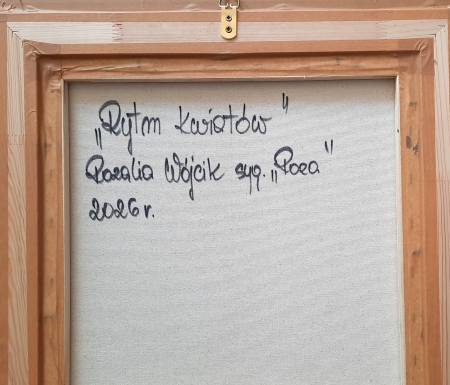 „Rytm kwiatów"
Rozalia Wójcik syg. „Roza"
2026 r.